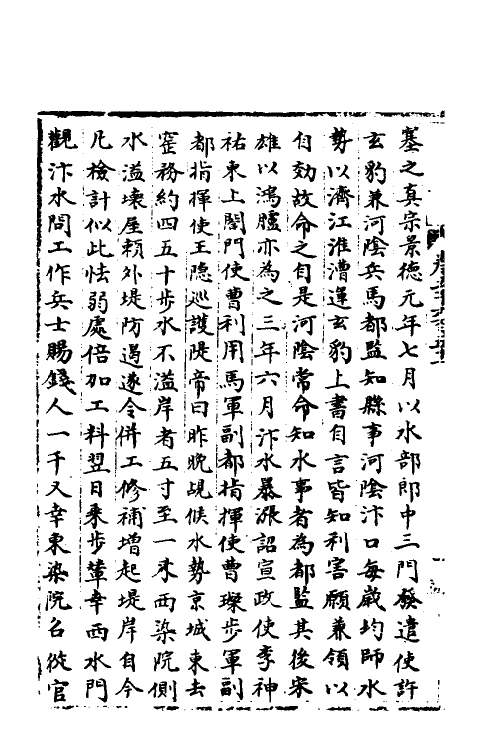 塞之真宗景德元年七月以水部郎中三門發遣使許
玄豹兼河陰兵馬都監知縣事河陰汴口每歲均師水
勢以濟江淮漕運玄豹上書自言皆知利害願兼領以
自効故命之自是河陰常命知水事者為都監其後宋
雄以鴻臚亦為之三年六月汴水暴漲詔宣政使李神
祐東上閤門使曹利用馬軍副都指揮使曹璨步軍副
都指揮使王隱巡護隄帝曰昨晚覘候水勢京城東去
窑務約四五十步水不溢岸者五寸至一尺西染院側
水溢壞屋賴外堤防遏遂令併工修補增起堤岸自今
凡檢計似此怯弱處倍加工料翌日乘步輦幸西水門
觀汴水問工作兵士賜錢人一千又幸東染院召從官